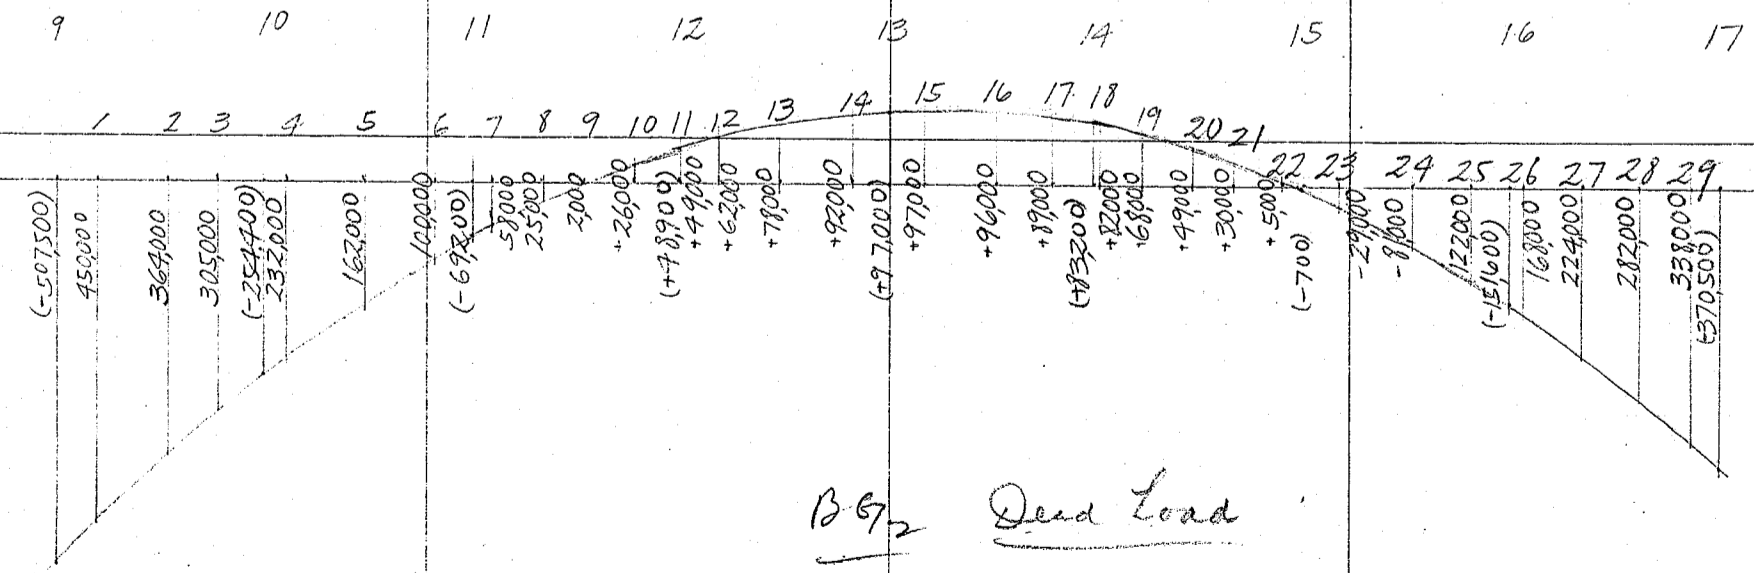 9 10 11 12 13 14 15 16 17
1 2 3 4 5 6 7 8 9 10 11 12 13 14 15 16 17 18 19 20 21
22 23 24 25 26 27 28 29
(-507,500) 450,000 364,000 305,000 (-254,400) 232,000 162,000 100,000 (-69,200) 58,000 25,000 2,000 +26,000 (+48,900) +49,000 +62,000 +78,000 +92,000 (+97,000) +97,000 +96,000 +89,000 (+83,200) +82,000 +68,000 +49,000 +30,000 +5,000 (-700) -29,000 122,000 (-151,600) 168,000 224,000 282,000 338,000 (-370,500)
Dead Load